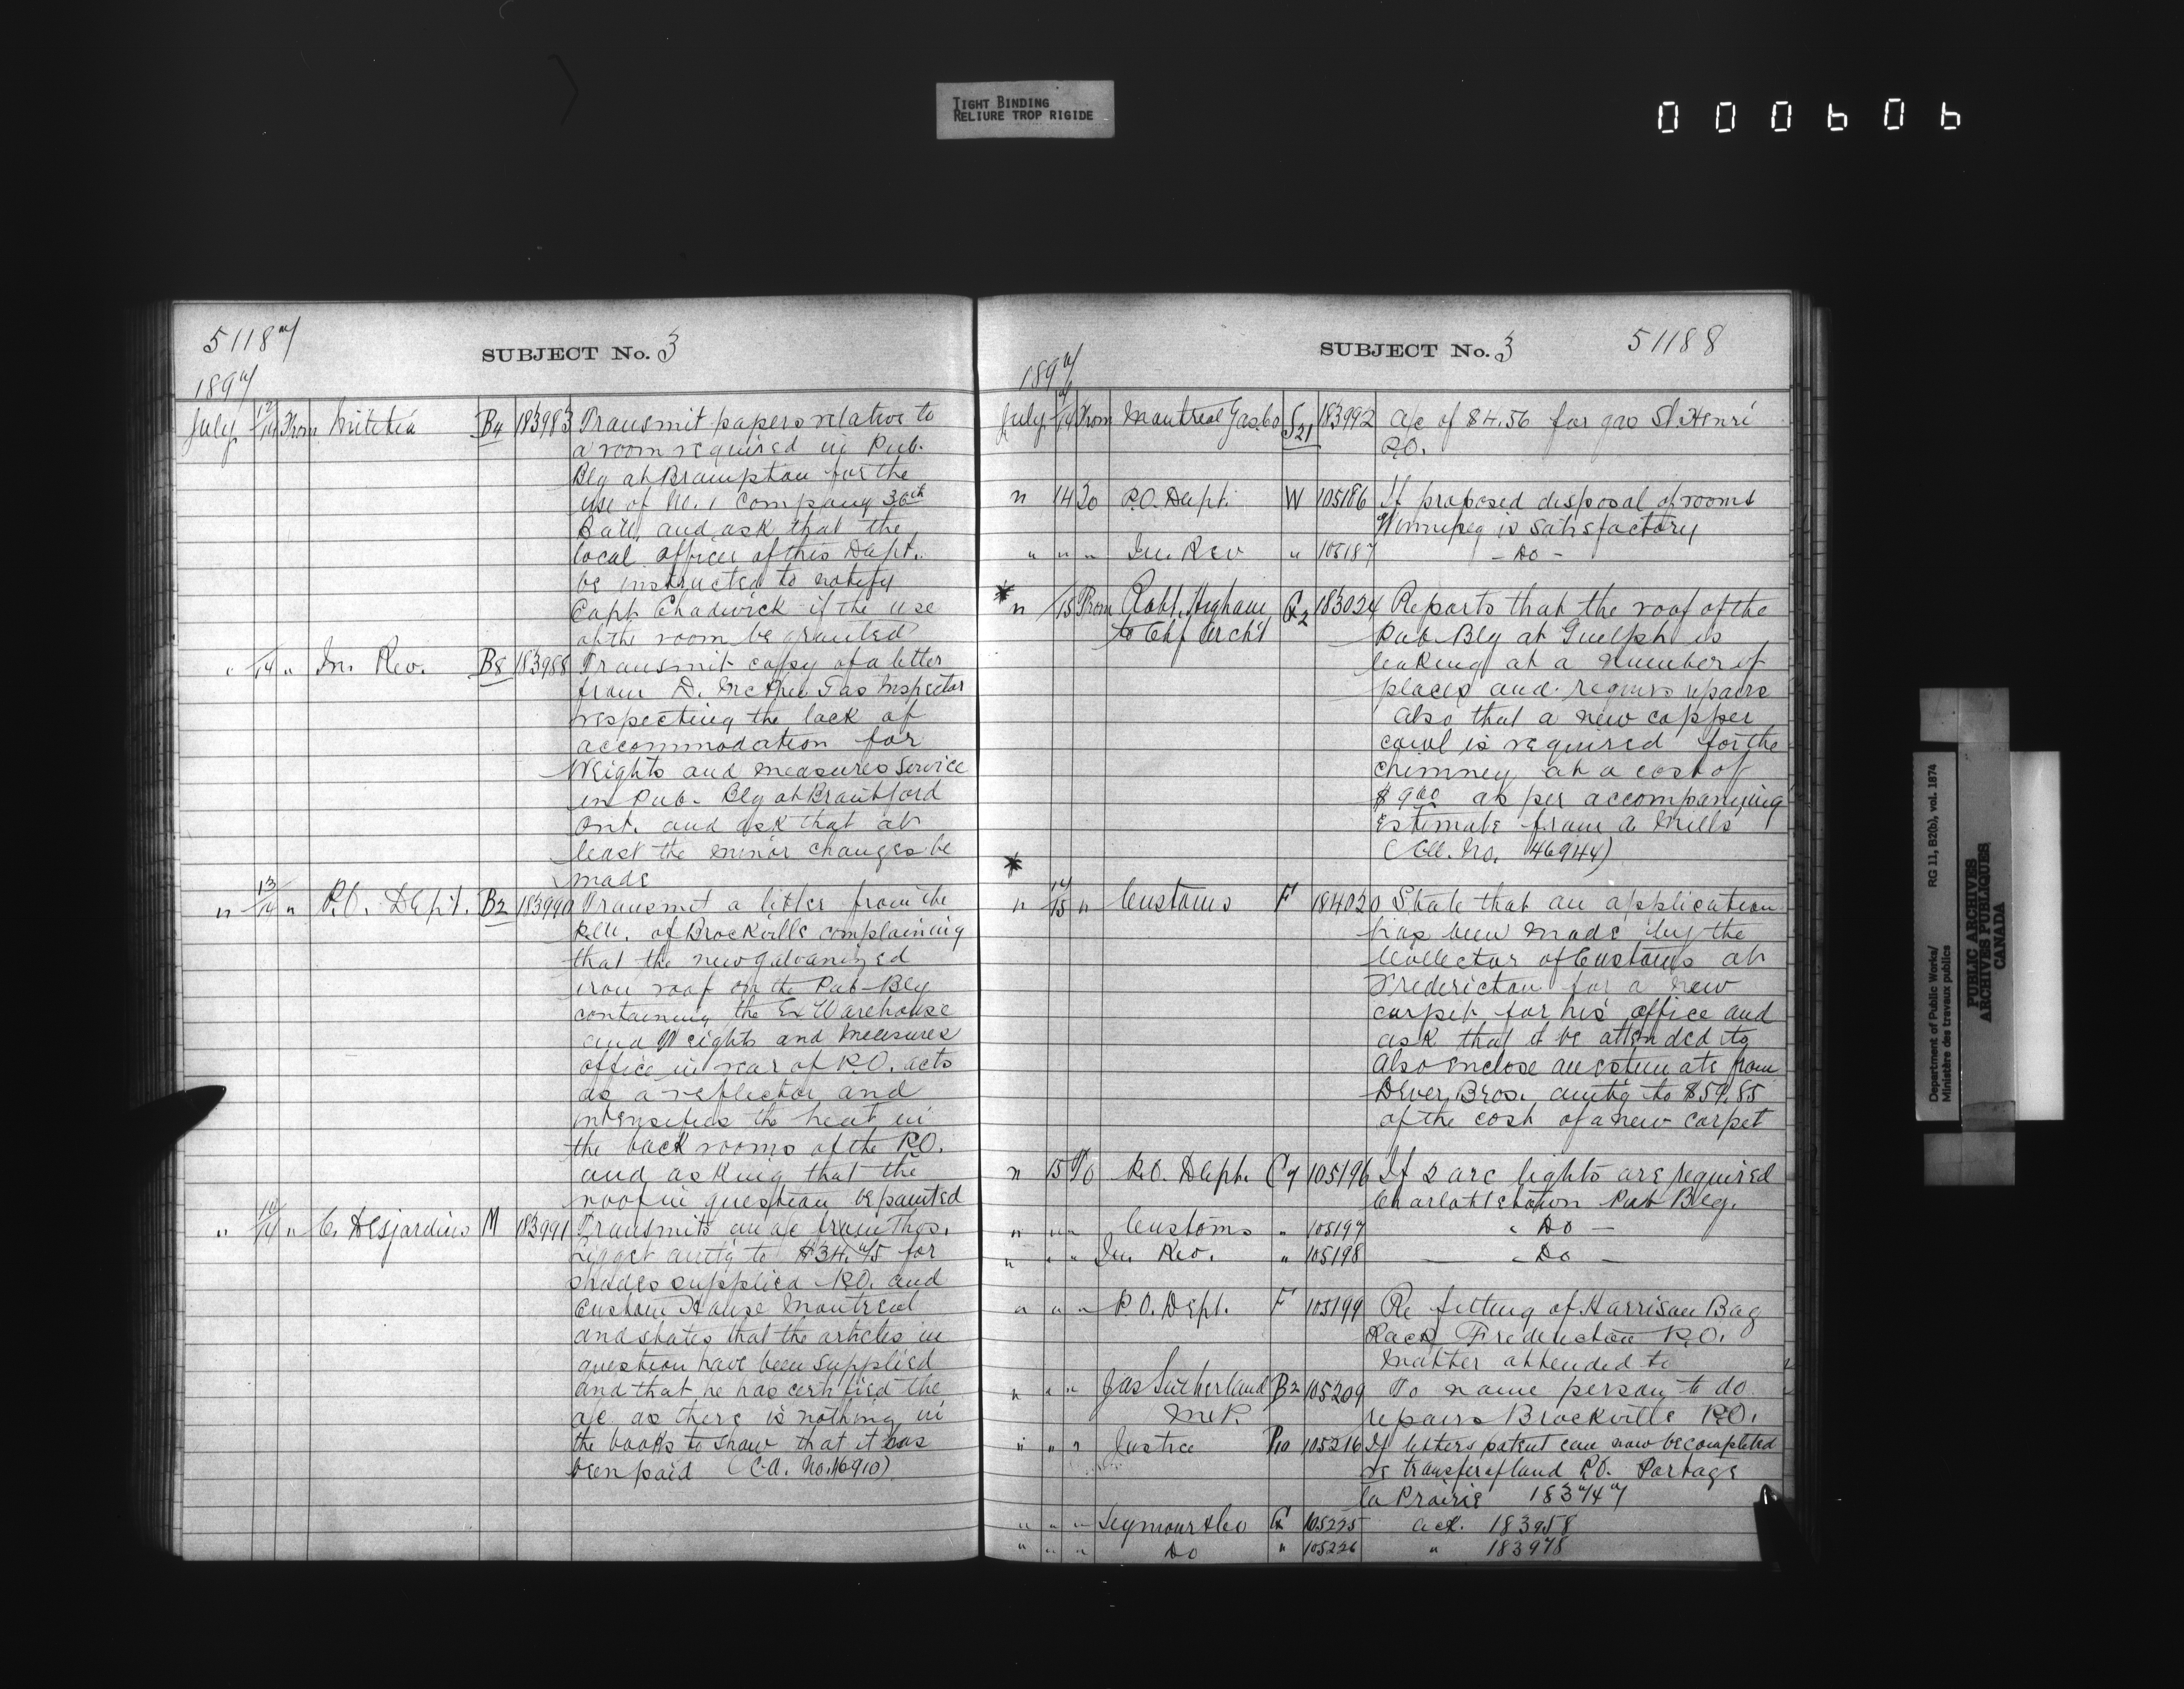 TIGHT BINDING
RELIURE TROP RIGIDE
000606
51187
SUBJECT No. 3
1897
July 12/14 From Militia B4 183983 Transmit papers relative to
a room required in Pub.
Blg at Brampton for the
use of No. 1 Company 36th
Batt. and ask that the
local officer of this Dept.
be instructed to notify
Capt. Chadwick if the use
of the room be granted
" /14 " In. Rev. B8 183988 Transmit copy of a letter
from D. McPhee Gas Inspector
respecting the lack of
accommodation for
Weights and measures service
in Pub. Blg at Brantford
Ont. and ask that at
least the minor changes be
made
" 13/14 " P.O. Dept. B2 183990 Transmit a letter from the
P.M. of Brockville complaining
that the new galvanized
iron roof on the Pub Blg
containing the Ex Warehouse
and Weights and measures
office in rear of P.O. acts
as a reflector and
intensifies the heat in
the back rooms of the P.O.
and asking that the
roof in question be painted
" 14 " C. Desjardins M 183991 Transmits an a/c from Thos.
Ligget amtg to $34.75 for
shades supplied P.O. and
Custom House Montreal
and states that the articles in
question have been supplied
and that he has certified the
a/c as there is nothing in
the books to show that it has
been paid (C.A. No. 46910)
SUBJECT No. 3
51188
1897
July /14 From Montreal Gas Co S21 183992 a/c of $4.56 for gas St. Henri
P.O.
" 14 To P.O. Dept. W 105186 If proposed disposal of rooms
Winnipeg is satisfactory
" " " In. Rev " 105187 - Do -
* " /15 From Robt. Higham G2 183024 Reports that the roof of the
to Chf Arch't Pub Blg at Guelph is
leaking at a number of
places and requires repairs
also that a new copper
cowl is required for the
chimney at a cost of
$9.00 as per accompanying
estimate from a Mills
(Col. No. 46944)
*
" 14/15 " Customs F 184020 State that an application
has been made by the
Collector of Customs at
Fredericton for a new
carpet for his office and
ask that it be attended to
also enclose an estimate from
Dever Bros. amtg to $59.85
of the cost of a new carpet
" 15 To P.O. Dept. C7 105196 If 2 arc lights are required
Charlottetown Pub Blg.
" " " Customs " 105197 " Do -
" " " In. Rev. " 105198 - " Do -
" " " P.O. Dept. F 105199 Re fitting of Harrison Bag
Rack Fredericton P.O.
Matter attended to
" " " Jas Sutherland B2 105209 To name person to do
M.P. repairs Brockville P.O.
" " " Justice P10 105216 If letters patent can now be completed
re transfer of land P.O. Portage
la Prairie 183747
" " " Seymour & Co G 105225 ack. 183958
" " " Do " 105226 " 183978
Department of Public Works/
Ministère des travaux publics
RG 11, B2(b), vol. 1874
PUBLIC ARCHIVES
ARCHIVES PUBLIQUES
CANADA